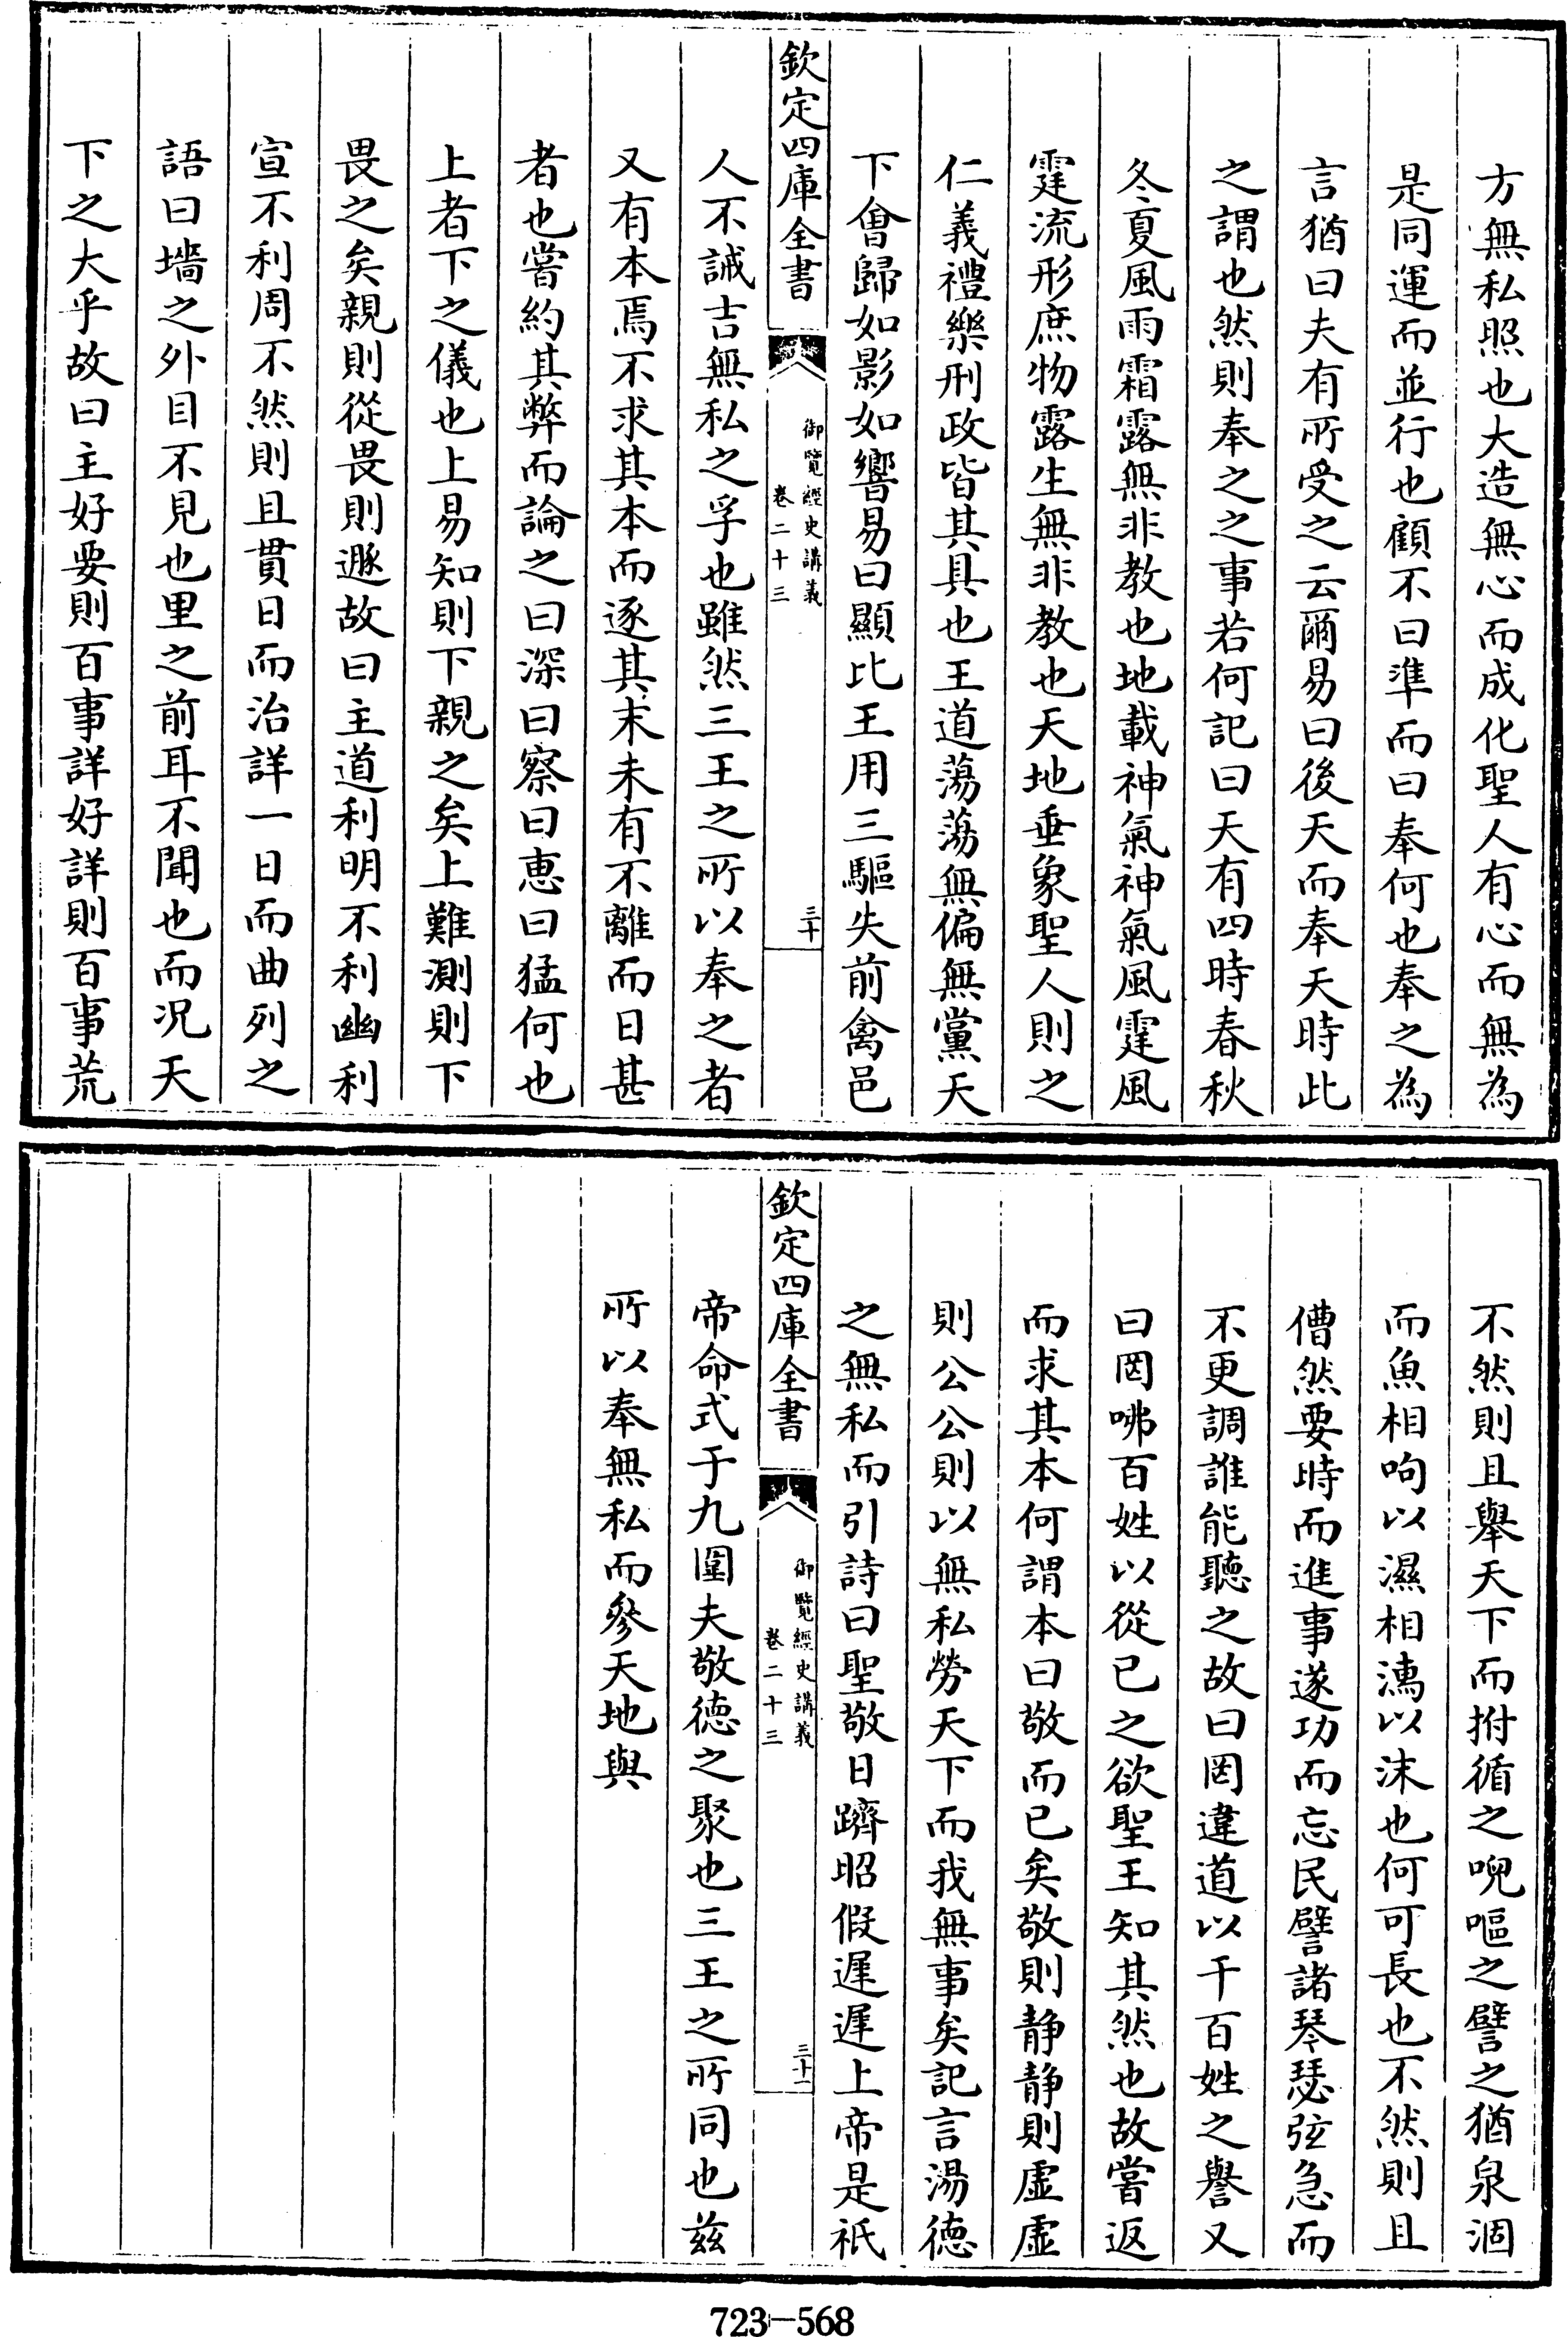 方無私照也大造無心而成化聖人有心而無為
是同運而並行也顧不曰準而曰奉何也奉之為
言猶曰夫有所受之云爾易曰後天而奉天時此
之謂也然則奉之之事若何記曰天有四時春秋
冬夏風雨霜露無非教也地載神氣神氣風霆風
霆流形庶物露生無非教也天地垂象聖人則之
仁義禮樂刑政皆其具也王道蕩蕩無偏無黨天
下會歸如影如響易曰顯比王用三驅失前禽邑
欽定四庫全書
御覽經史講義
卷二十三
三十
人不誡吉無私之孚也雖然三王之所以奉之者
又有本焉不求其本而逐其末未有不離而日甚
者也嘗約其弊而論之曰深曰察曰惠曰猛何也
上者下之儀也上易知則下親之矣上難測則下
畏之矣親則從畏則遯故曰主道利明不利幽利
宣不利周不然則且貫日而治詳一日而曲列之
語曰墻之外目不見也里之前耳不聞也而况天
下之大乎故曰主好要則百事詳好詳則百事荒
不然則且舉天下而拊循之唲嘔之譬之猶泉涸
而魚相呴以濕相濡以沫也何可長也不然則且
傮然要時而進事遂功而忘民譬諸琴瑟弦急而
不更調誰能聽之故曰罔違道以干百姓之譽又
曰罔咈百姓以從已之欲聖王知其然也故嘗返
而求其本何謂本曰敬而已矣敬則静静則虛虛
則公公則以無私勞天下而我無事矣記言湯德
之無私而引詩曰聖敬日躋昭假遲遲上帝是祇
欽定四庫全書
御覽經史講義
卷二十三
三十一
帝命式于九圍夫敬德之聚也三王之所同也兹
所以奉無私而參天地與
723-568